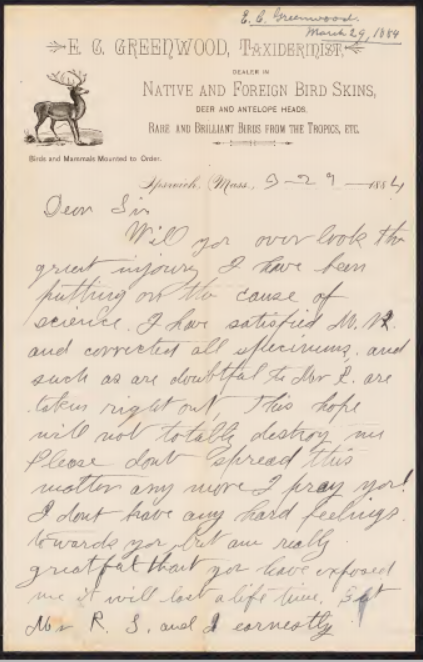 E. C. Greenwood.
March 29, 1884
E. C. GREENWOOD, TAXIDERMIST,
DEALER IN
NATIVE AND FOREIGN BIRD SKINS,
DEER AND ANTELOPE HEADS,
RARE AND BRILLIANT BIRDS FROM THE TROPICS, ETC.
Birds and Mammals Mounted to Order.
Ipswich, Mass., 3-29-1884
Dear Sir
Will you over look the
great injoury I have been
putting on the cause of
science. I have satisfied
and corrected all specimens, and
such as are doubtful to Mr R. are
taken right out, This hope
will not totally destroy me
Please dont spread this
matter any more I pray you!
I dont have any hard feelings
towards you, but am really
greatful that you have exposed
me it will last a life time, But
Mr R. S. and I earnestly